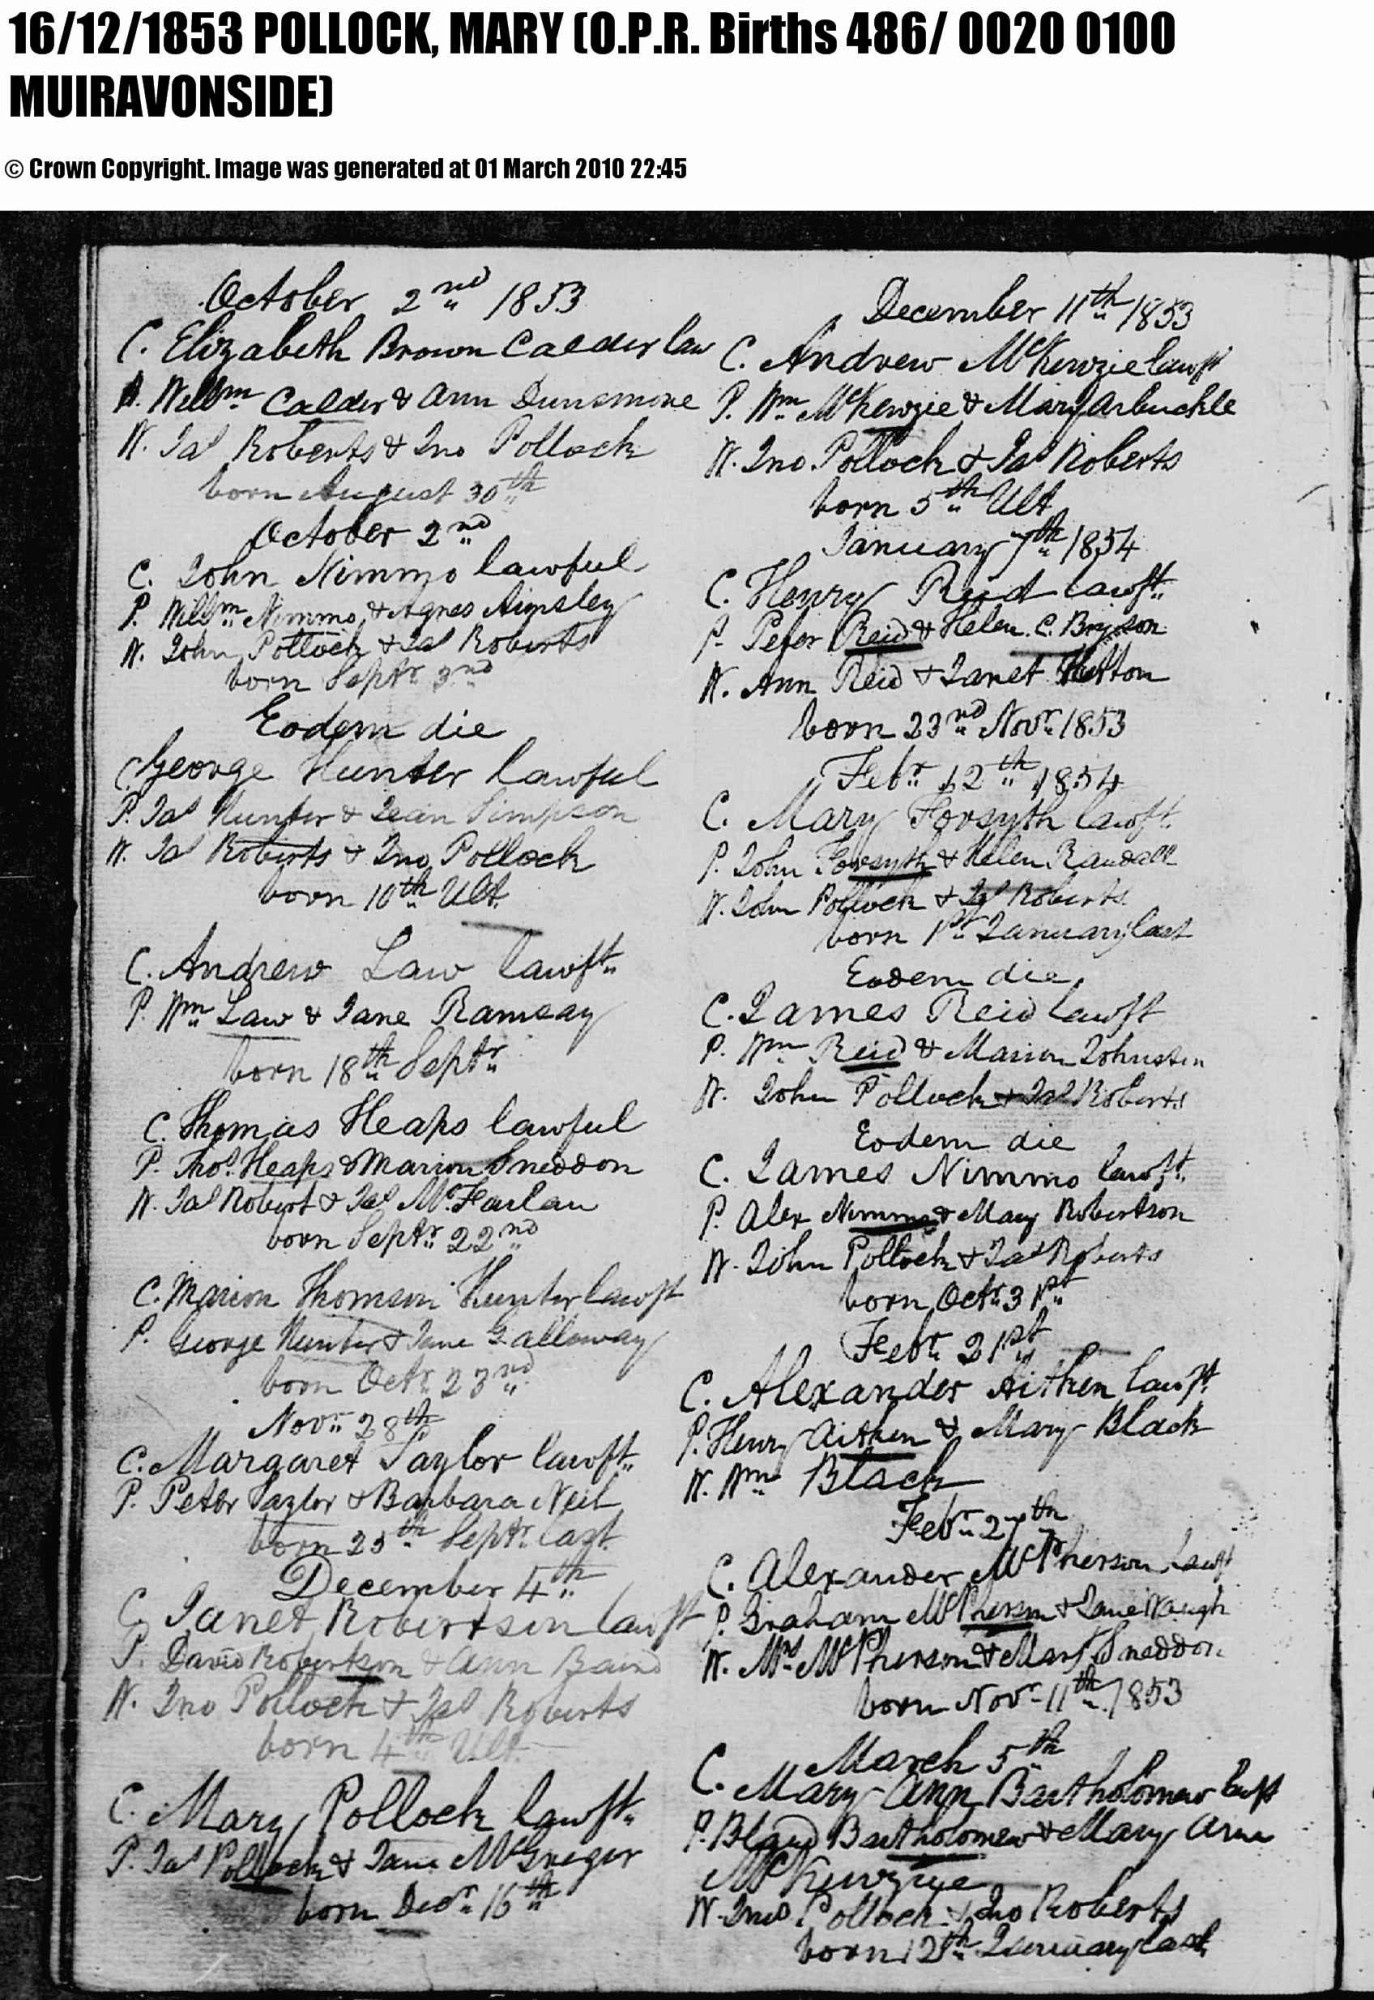 16/12/1853 POLLOCK, MARY (O.P.R. Births 486/ 0020 0100
MUIRAVONSIDE)
© Crown Copyright. Image was generated at 01 March 2010 22:45
October 2nd 1853
C. Elizabeth Brown Calder law
P. Willm Calder & Ann Dunsmore
W. Jas Roberts & Jno Pollock
born August 30th
October 2nd
C. John Nimmo lawful
P. Willm Nimmo & Agnes Aimsley
W. John Pollock & Jas Roberts
born Septr 3nd
Eodem die
C George Hunter lawful
P. Jas Hunter & Jean Simpson
W. Jas Roberts & Jno Pollock
born 10th Ult.
C. Andrew Law lawft.
P. Wm Law & Jane Ramsay
born 18th Septr
C. Thomas Heaps lawful
P. Thos. Heaps & Marion Sneddon
W. Jas Robert & Jas McFarlan
born Septr 22nd
C. Marion Thomson Hunter lawft
P. George Hunter & Jane Galloway
born Octr 23nd
Novr 28th
C. Margaret Taylor lawft.
P. Peter Taylor & Barbara Neil
born 25th Septr last
December 4th
C. Janet Robertson lawft
P. David Robertson & Ann Baird
W. Jno Pollock & Jas Roberts
born 4th Ult.
C. Mary Pollock lawft.
P. Jas Pollock & Jane McGregor
born Decr 16th
December 11th 1853
C. Andrew McKenzie lawft
P. Wm McKenzie & Mary Arbuckle
W. Jno Pollock & Jas Roberts
born 5th Ult
January 7th 1854
C. Henry Reid lawft.
P. Peter Reid & Helen C. Bryson
W. Ann Reid & Janet Hutton
born 23nd Novr 1853
Febr 12th 1854
C. Mary Forsyth lawft.
P. John Forsyth & Helen Randall
W. John Pollock & Jas Roberts
born 1st January last
Eodem die
C. James Reid lawft
P. Wm Reid & Marion Johnston
W. John Pollock & Jas Roberts
Eodem die
C. James Nimmo lawft.
P. Alex Nimmo & Mary Robertson
W. John Pollock & Jas Roberts
born Octr 31st
Febr 21st
C. Alexander Aitken lawft
P. Henry Aitken & Mary Black
W. Wm Black
Febr 27th
C. Alexander McPherson lawft
P. Graham McPherson & Jane Waugh
W. Mrs McPherson & Mary Sneddon
born Novr 11th 1853
March 5th
C. Mary Ann Bartholomew lawft
P. Bartholomew & Mary Ann
McKenzie
W. Jno. Pollock & Jno Roberts
born 12th January last